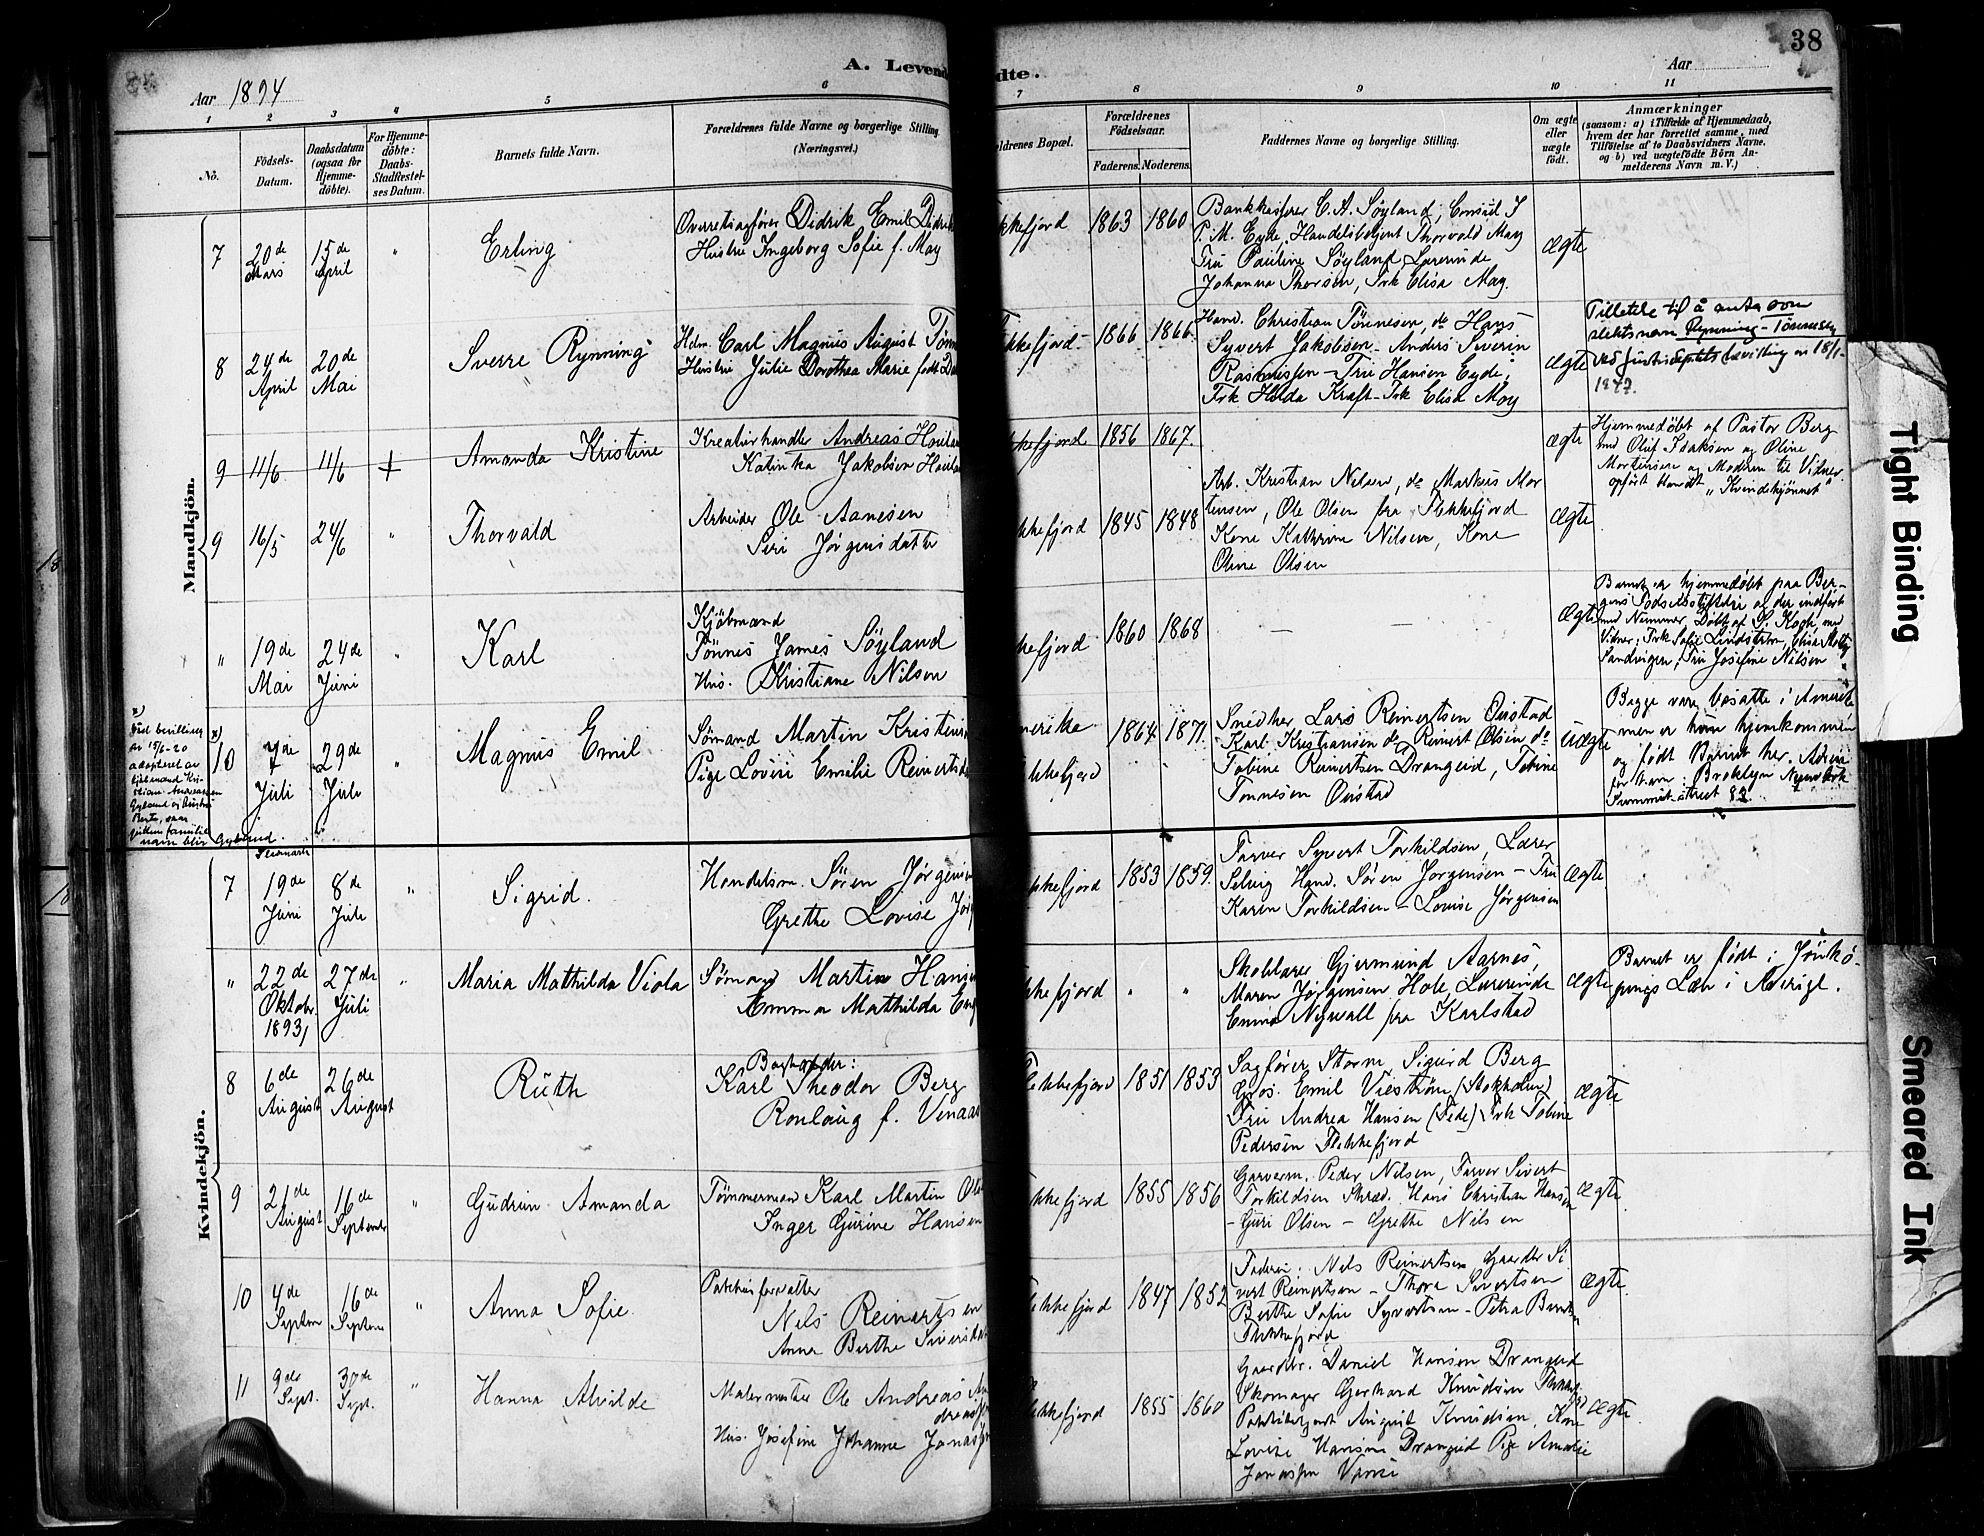 38
Aar 1894
A. Levend
dte.
Aar
1
2
3
4
5
6
7
8
9
10
11
No.
Födsels-
Datum.
Daabsdatum
(ogsaa for
Hjemme-
döbte).
For Hjemme-
döbte:
Daabs-
Stadfæstel-
ses Datum.
Barnets fulde Navn.
Forældrenes fulde Navne og borgerlige Stilling.
(Næringsvei.)
ldrenes Bopæl.
Forældrenes
Födselsaar.
Faderens.
Moderens.
Faddernes Navne og borgerlige Stilling.
Om ægte
eller
uægte
födt.
Anmærkninger
(saasom: a) i Tilfælde af Hjemmedaab,
hvem der har forrettet samme, med
Tilföielse af to Daabsvidners Navne,
og b) ved uægtefödte Börn An-
melderens Navn m.V.)
Mandkjön.
7
20de
Mars
15de
April
"
Erling
Overretssagfører Didrik Emil Didrik
Hustru Ingeborg Sofie f. May
kkefjord
1863
1860
Bankkasserer C. A. Søyland, Consul J
P. M. Eyde, Handelsbetjent Thorvald May
Fru Pauline Søyland Lærerinde
Johanna Thorsen, Frk Elisa May.
ægte
8
24de
April
20de
Mai
Sverre Rynning
Hdm. Carl Magnus August Tønn
Hustru Julie Dorothea Marie født D
kkefjord
1866
1866
Hand. Christian Tønnesen, do Hans
Syvert Jakobsen - Anders Severin
Rasmussen - Fru Hansen Eyde,
Frk Hilda Kraft - Frk Elisa May
ægte
Tillatelse til å anta som
slektsnavn Rynning-Tønnesen
ved Justisdeptets bevilling av 18/1-
1947.
9
11/6
11/6
+
Amanda Kristine
Kreaturhandler Andreas Houland
Katinka Jakobsen Houland
kkefjord
1856
1867.
ægte
Hjemmedøbt af Pastor Berg
med Oluf Isaksen og Oline
Mortensen og Moderen til Vidner.
opført blandt "Kvindekjønnet"
9
16/5
24/6
"
Thorvald
Arbeider Ole Aanesen
Seri Jørgensdatter
kkefjord
1845
1848
Arb. Kristian Nilsen, do Markus Mor
tensen, Ole Olsen fra Flekkefjord
Kone Kathrine Nilsen, Kone
Oline Olsen
ægte
"
19de
Mai
24de
Juni
"
Karl
Kjøbmand
Tønnes James Søyland
Hus. Kristiane Nilsen
kefjord
1860
1868
—
—
ægte
Barnet er hjemmedøbt paa Ber-
gens Fødselsstiftelse og der indført
med Nummer, Døbt af S. Koch med
Vidner, Frk Sofie Lindstrøm, Elisa
Sandvigen, Fru Josefine Nilsen
x)
Ved bevilling
av 15/6-20
adopteret av
Kri-
stian Andreassen
Gyland og hustru
Berta,
familie
navn blir Gyland.
x)
10
7de
Juli
29de
Juli
"
Magnus Emil
Sømand Martin Kristens
Pige Lovise Emilie Reinertsd
merika
kkefjord
1864
1871.
Snedker Lars Reinertsen Ønstad
Karl Kristiansen do Reinert Olsen do
Tobine Reinertsen Drangeid, Tobine
Tønnesen Ønstad
uægte
Begge vare bosatte i Amerika
men er hun hjemkommen
og født Barnet her. Adresse
for ham: Broklyn New York
Summit-street 83.
Kvindekjön.
7
19de
Juni
8de
Juli
"
Sigrid.
Handelsm. Søren Jørgensen
Grethe Lovise Jør
kkefjord
1853
1859.
Farver Syvert Torkildsen, Lærer
Selvig Hand. Søren Jørgensen - Fru
Karen Torkildsen - Lovise Jørgensen
ægte
"
22de
Oktober
1893,
27de
Juli
"
Maria Mathilda Viola
Sømand Martin Hansen
Emma Mathilda Eng
kkefjord
"
"
Skolelærer Gjermund Aarnes,
Maren Jørgensen Hole, Lærerinde
Emma Nywall fra Karlstad
ægte
Barnet er født i Jönkö-
pings Læn i Sverige.
8
6de
August
26de
August
Ruth
Karl Theodor Berg
Ronlaug f. Vinaas
lekkefjord
1851
1853
Sagfører Storm, Sigurd Berg
Gros. Emil Viestrøm (Stokholm)
Fru Andrea Hansen (Fede) Frk Tobine
Pedersen Flekkefjord
ægte
9
21de
August
16de
September
"
Gudrun Amanda
Tømmermand Karl Martin Ols
Inger Gurine Hansen
kkefjord
1855
1856
Garverm. Peder Nilsen, Farver Sivert
Torkildsen Skræd. Hans Christian Hansen
- Guri Olsen - Grethe Nilsen
ægte
10
4de
Septem
16de
Septem
"
Anna Sofie.
Pakhusforvalter
Nels Reinertsen
Anne Berthe Siversdat
lekkefjord
1847
1852
Faderen: Nels Reinertsen Gaardbr Si
vert Reinertsen - Thora Sivertsen
Berthe Sofie Syvertsen - Petra Berntsen
Flekkefjord
ægte.
11
9de
Sept.
30de
Sept.
"
Hanna Alvilde
Malermester Ole Andreas An
dreassen
Hus. Josefine Johanne Jonassen
lekkefjord
1855
1860
Gaardbr. Daniel Hansen Drangeid
Skomager Gerhard Knudsen Flekkefj
August Knudsen, Kone
Lovise Hansen Drangeid Pige Amalie
Jonassen
ægte.
Tight Binding
Smeared Ink